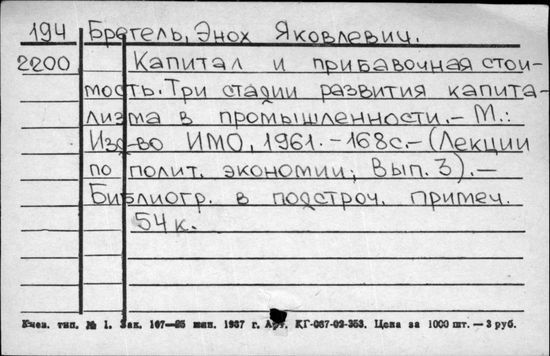 194 Брегель, Энох Яковлевич.
2200 Капитал и прибавочная стои-
мость. Три стадии развития капита-
лизма в промышленности.- М.:
Изд-во ИМО, 1961.-168с.-(Лекции
по полит. экономии; Вып. 3).-
Библиогр. в подстроч. примеч.
54к.
тип. № 1. Зак. 107—25 1937 г. Арт. КГ-037-02-353. Цена за 1000 шт. — 3 руб.